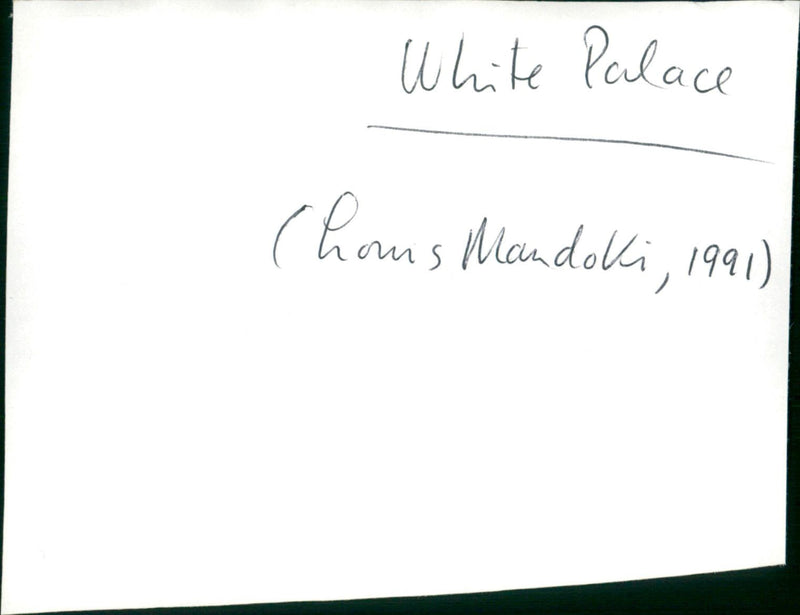 White Palace
(Louis Mandoki, 1991)